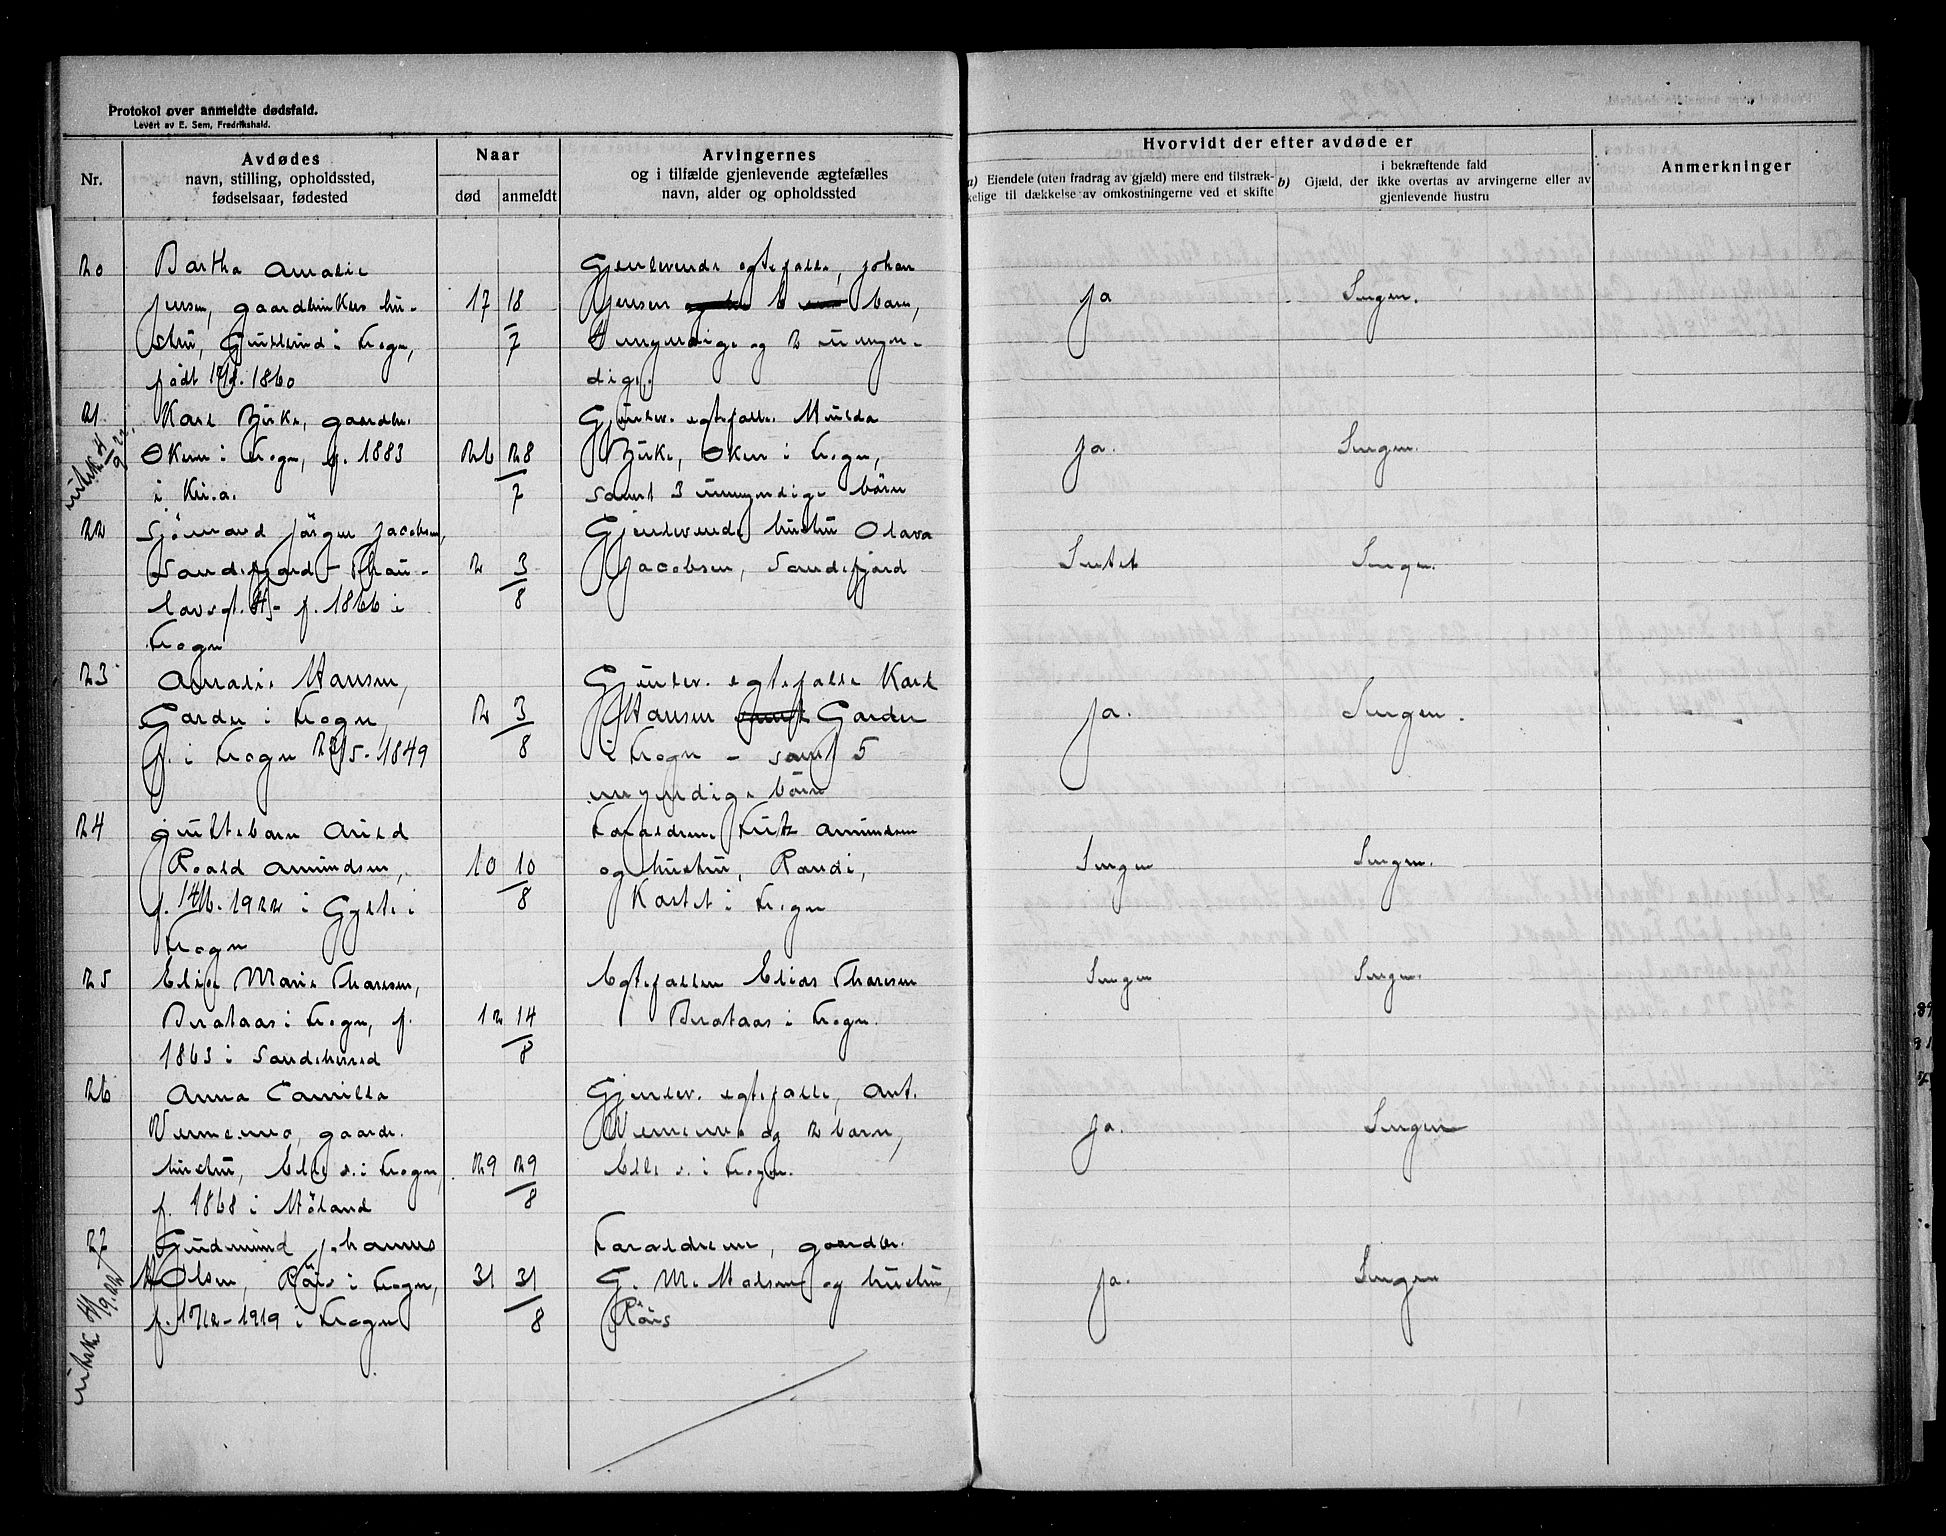 Protokol over anmeldte dødsfald.
Levert av E. Sem, Fredrikshald.
Nr.
Avdødes
navn, stilling, opholdssted,
fødselsaar, fødested
Naar
død
anmeldt
Arvingernes
og i tilfælde gjenlevende ægtefælles
navn, alder og opholdssted
Hvorvidt der efter avdøde er
a) Eiendele (uten fradrag av gjæld) mere end tilstræk-
kelige til dækkelse av omkostningerne ved et skifte
b) Gjæld, der
i bekræftende fald
ikke overtas av arvingerne eller av
gjenlevende hustru
Anmerkninger
20
Bertha Amalie
Jensen, gaardbrukers hu-
stru, i Krogn,
født 1860
17 18/7
Gjenlevende egtefælle, Johan
Jensen 6 barn,
4 myndige og 2 umyn-
dige.
Ja
Ingen.
21
Karl Birke, gaardbr.
Oker i Krogn, f. 1883
i Kr.a.
26 28/7
Gjenlev. egtefælle
Birke, Oker i Krogn,
samt 3 umyndige børn
Ja.
Ingen.
22
Sjømand Jørgen Jacobsen,
Sandefjord - Thau-
lowsgt. 4 - f. 1866 i
Krogn
2 3/8
Gjenlevende hustru Olava
Jacobsen, Sandefjord
Intet
Ingen.
23
Amalie Hansen,
Garder i Krogn
f. i Krogn 22/5-1849
2 3/8
Gjenlev. egtefælle Karl
Hansen samt Garder
i Krogn - samt 5
myndige børn
Ja.
Ingen.
24
guttebarn Arild
Roald Amundsen,
f. 14/6.1922 i i
Krogn
10 10/8
Forældrene Fritz Amundsen
og hustru, Randi,
Kortet i Krogn
Ingen
Ingen.
25
Elise Marie Thoresen,
Brataas i Krogn, f.
1863 i Sandeherred
12 14/8
Egtefællen Elias Thoresen
Brataas i Krogn.
Ingen
Ingen.
26
Anna Camilla
gaardbr.
hustru, i Krogn,
f. 1868 i Høland
29 29/8
Gjenlev. egtefælle, Ant.
og 2 barn,
i Krogn.
Ja.
Ingen
27
Gudmund Johannes
Holsen, Røis i Krogn,
f. 1919 i Krogn
31 31/8
Forældrene, gaardbr.
G. M. Holsen og hustru,
Røis
Ja.
Ingen